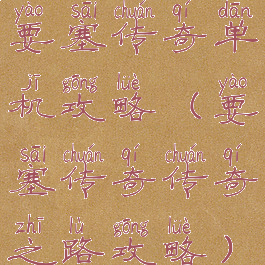 yào sāi chuán qí dān
要塞传奇单
jī gōng lüè yào
机攻略（要
sāi chuán qí chuán qí
塞传奇传奇
zhī lù gōng lüè
之路攻略）